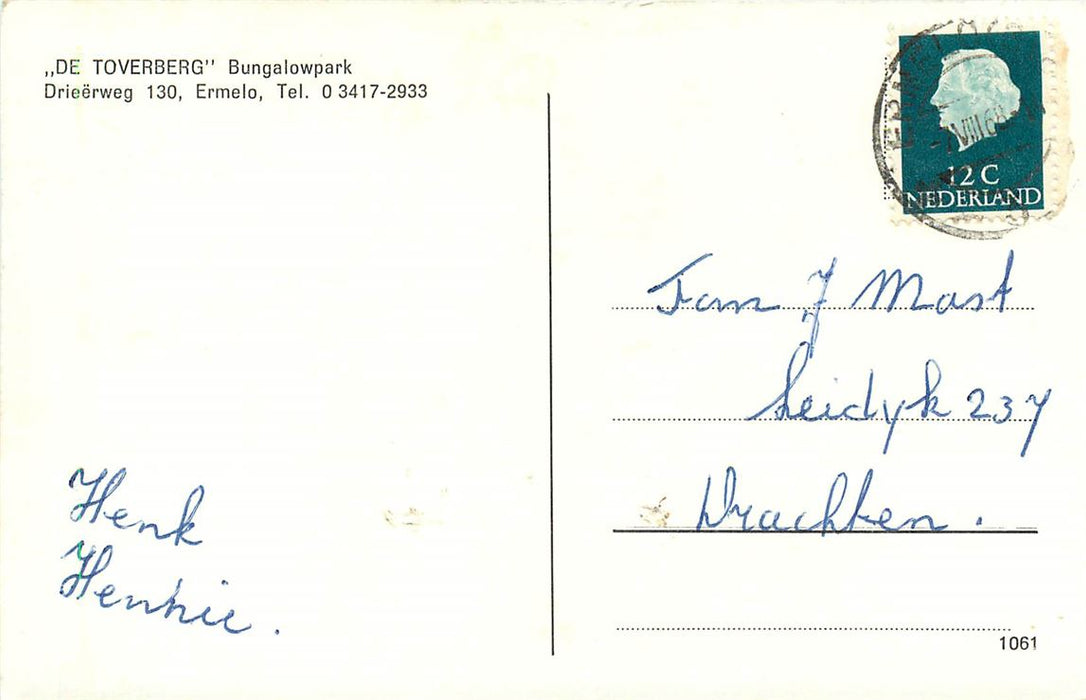 „DE TOVERBERG” Bungalowpark
Drieërweg 130, Ermelo, Tel. 0 3417-2933
ERMELO
-7 VIII 68
12 C
NEDERLAND
Fam J Mast
Leidyk 237
Drachten.
Henk
Hennie.
1061